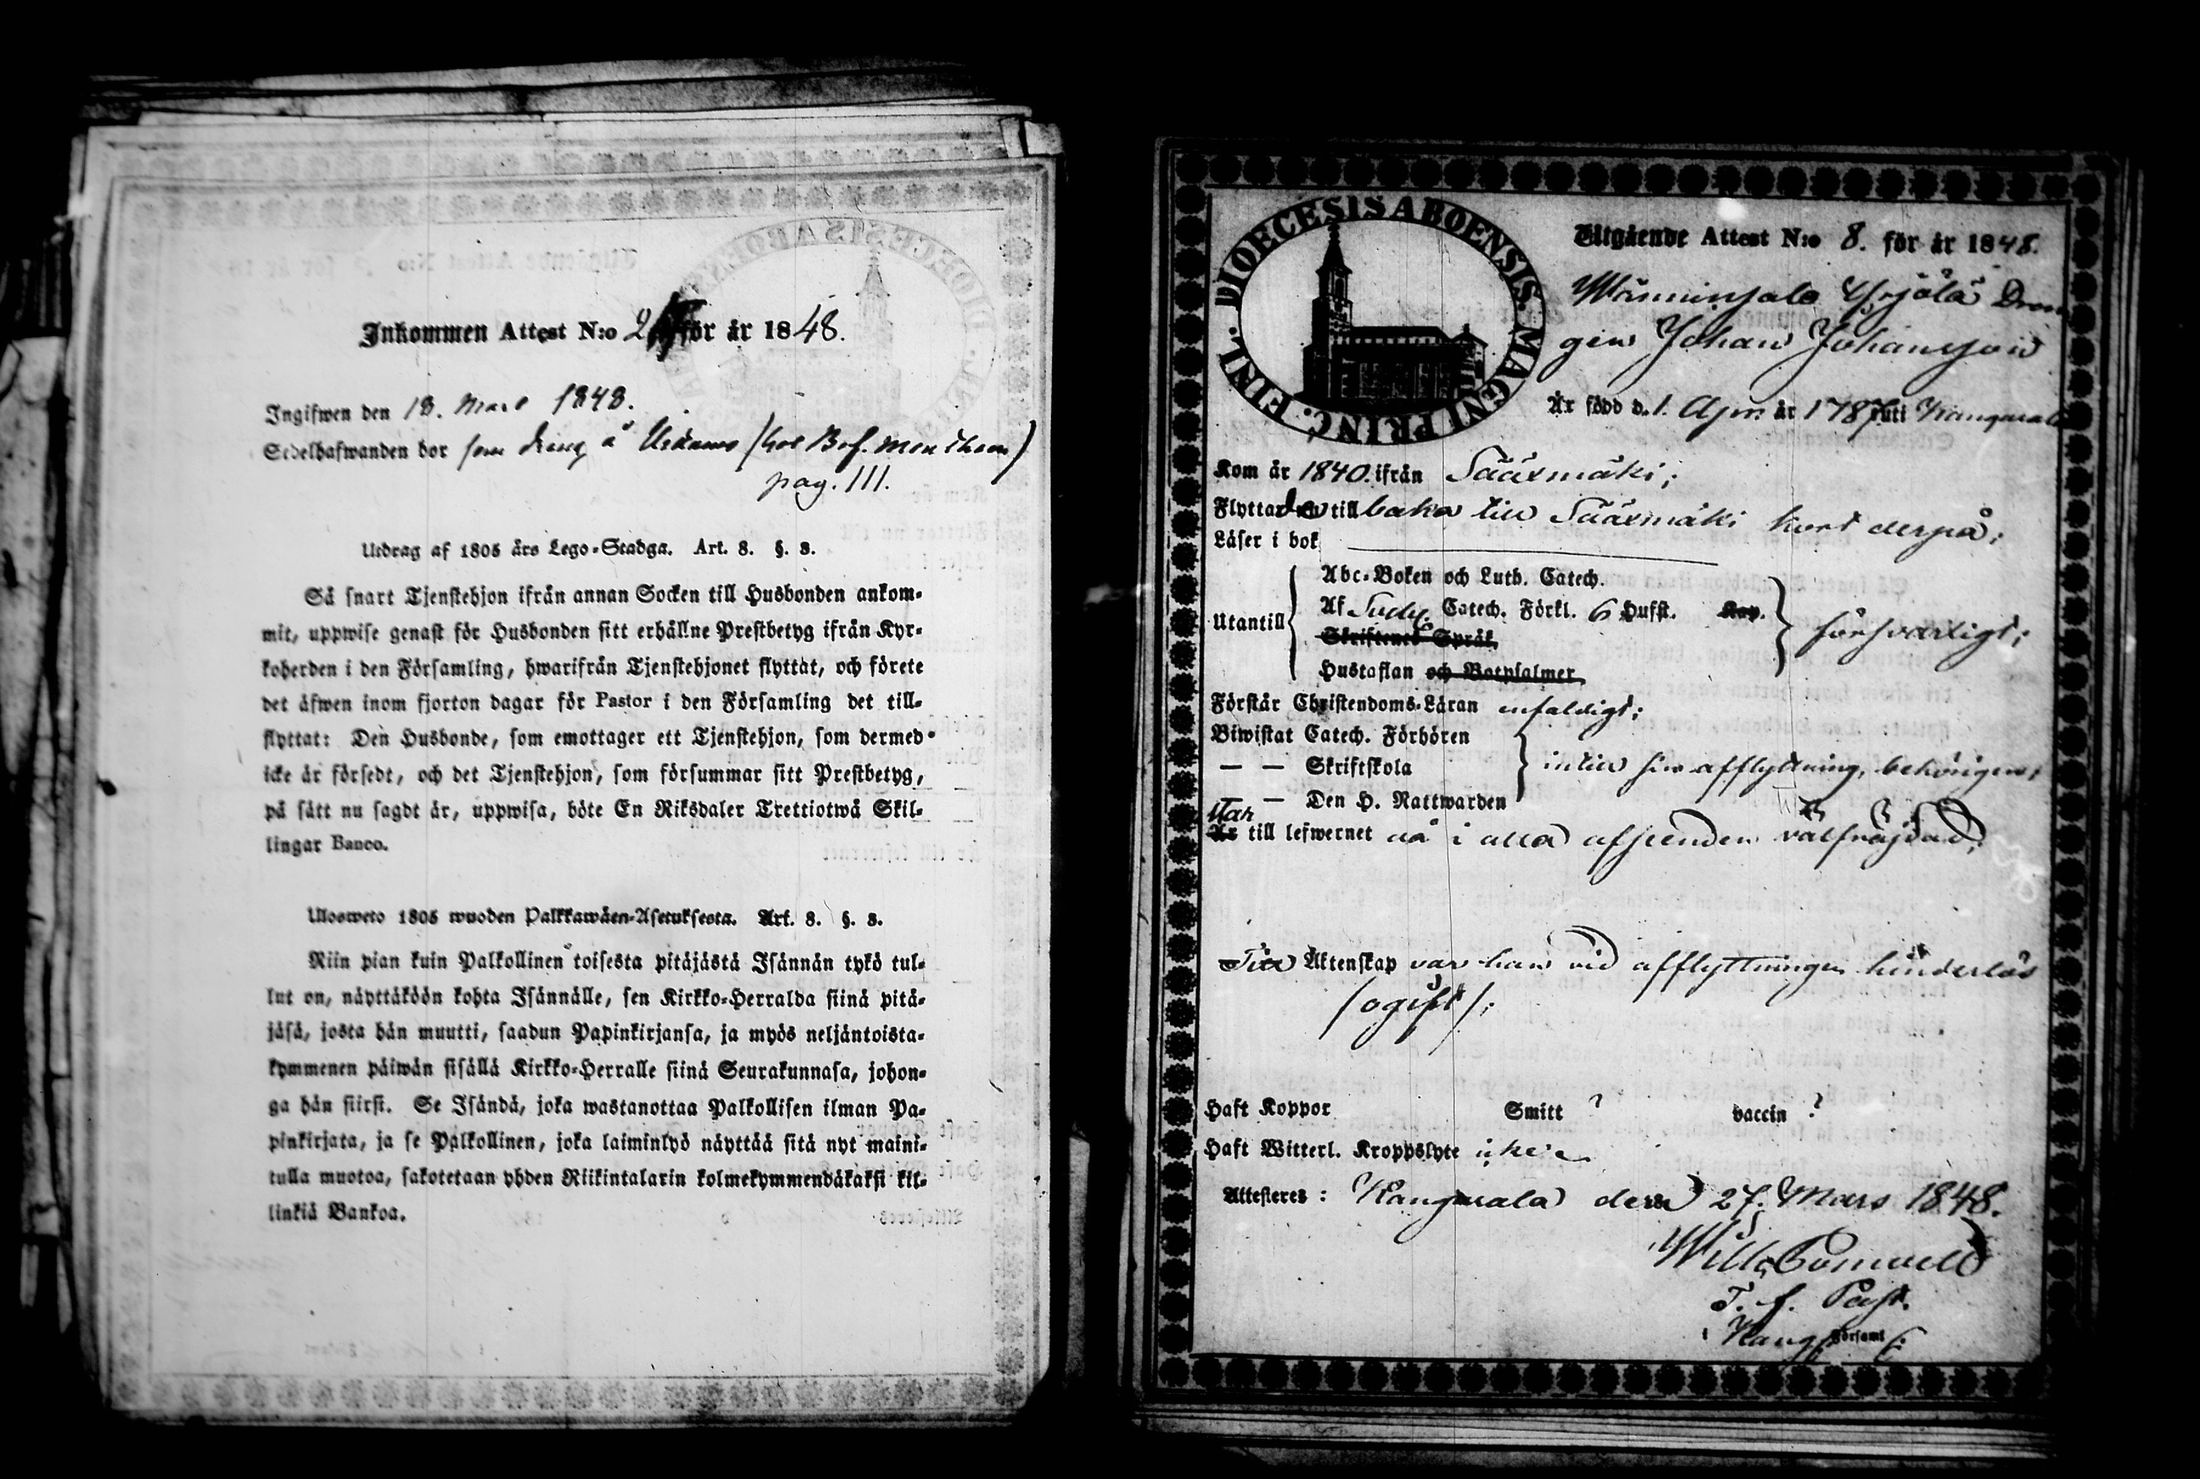 Inkommen Attest N:o 2 för år 1848.
Ingifwen den 13. Mars 1848.
Sedelhafwanden bor som dreng å
pag. 111.
Utdrag af 1805 års Lego-Stadga. Art. 8. §. 8.
Så snart Tjenstehjon ifrån annan Socken till Husbonden ankom-
mit, uppwise genast för Husbonden sitt erhållne Prestbetyg ifrån Kyr-
koherden i den Församling, hwarifrån Tjenstehjonet flyttat, och förete
det äfwen inom fjorton dagar för Pastor i den Församling det till-
flyttat: Den Husbonde, som emottager ett Tjenstehjon, som dermed
icke är försedt, och det Tjenstehjon, som försummar sitt Prestbetyg,
på sätt nu sagdt är, uppwisa, böte En Riksdaler Trettiotwå Skil-
lingar Banco.
Ulosweto 1805 wuoden Palkkawäen-Asetuksesta. Art. 8. §. 8.
Niin pian kuin Palkollinen toisesta pitäjästä Isännän tykö tul-
lut on, näyttäköön kohta Isännälle, sen Kirkko-Herralda siinä pitä-
jäsä, josta hän muutti, saadun Papinkirjansa, ja myös neljäntoista-
kymmenen päiwän sisällä Kirkko-Herralle siinä Seurakunnasa, johon-
ga hän siirsi. Se Isändä, joka wastanottaa Palkollisen ilman Pa-
pinkirjata, ja se Palkollinen, joka laiminlyö näyttää sitä nyt maini-
tulla muotoa, sakotetaan yhden Riikintalarin kolmekymmendäkaksi kil-
linkiä Bankoa.
DIOECESIS ABOENSIS. MAGNI PRINC. FINL.
Utgående Attest N:o 8. för år 1848.
Dren
gen Johan Johansson
Är född d. 1. Apr. år 1787 uti Kangasala
Kom år 1840. ifrån Sääxmäki;
Flyttade tillbaka till Sääxmäki kort derpå;
Läser i bok
Utantill
Abc-Boken och Luth. Catech.
Af Catech. Förkl. 6 Hufst. Kap.
Skriftenes Språk,
Hustaflan och Botpsalmer
försvarligt;
Förstår Christendoms-Läran enfaldigt;
Biwistat Catech. Förhören
— — Skriftskola
— — Den H. Nattwarden
intill sin afflyttning, behörigen;
Var
Är till lefwernet då i alla afseenden välfräjdad;
Till Äktenskap var han vid afflyttningen hinderlös
/ogift/;
Haft Koppor Smitt ? vaccin ?
Haft Witterl. Kroppslyte icke
Attesteres: Kangasala den 27. Mars 1848.
T. f. Past.
Kang församl